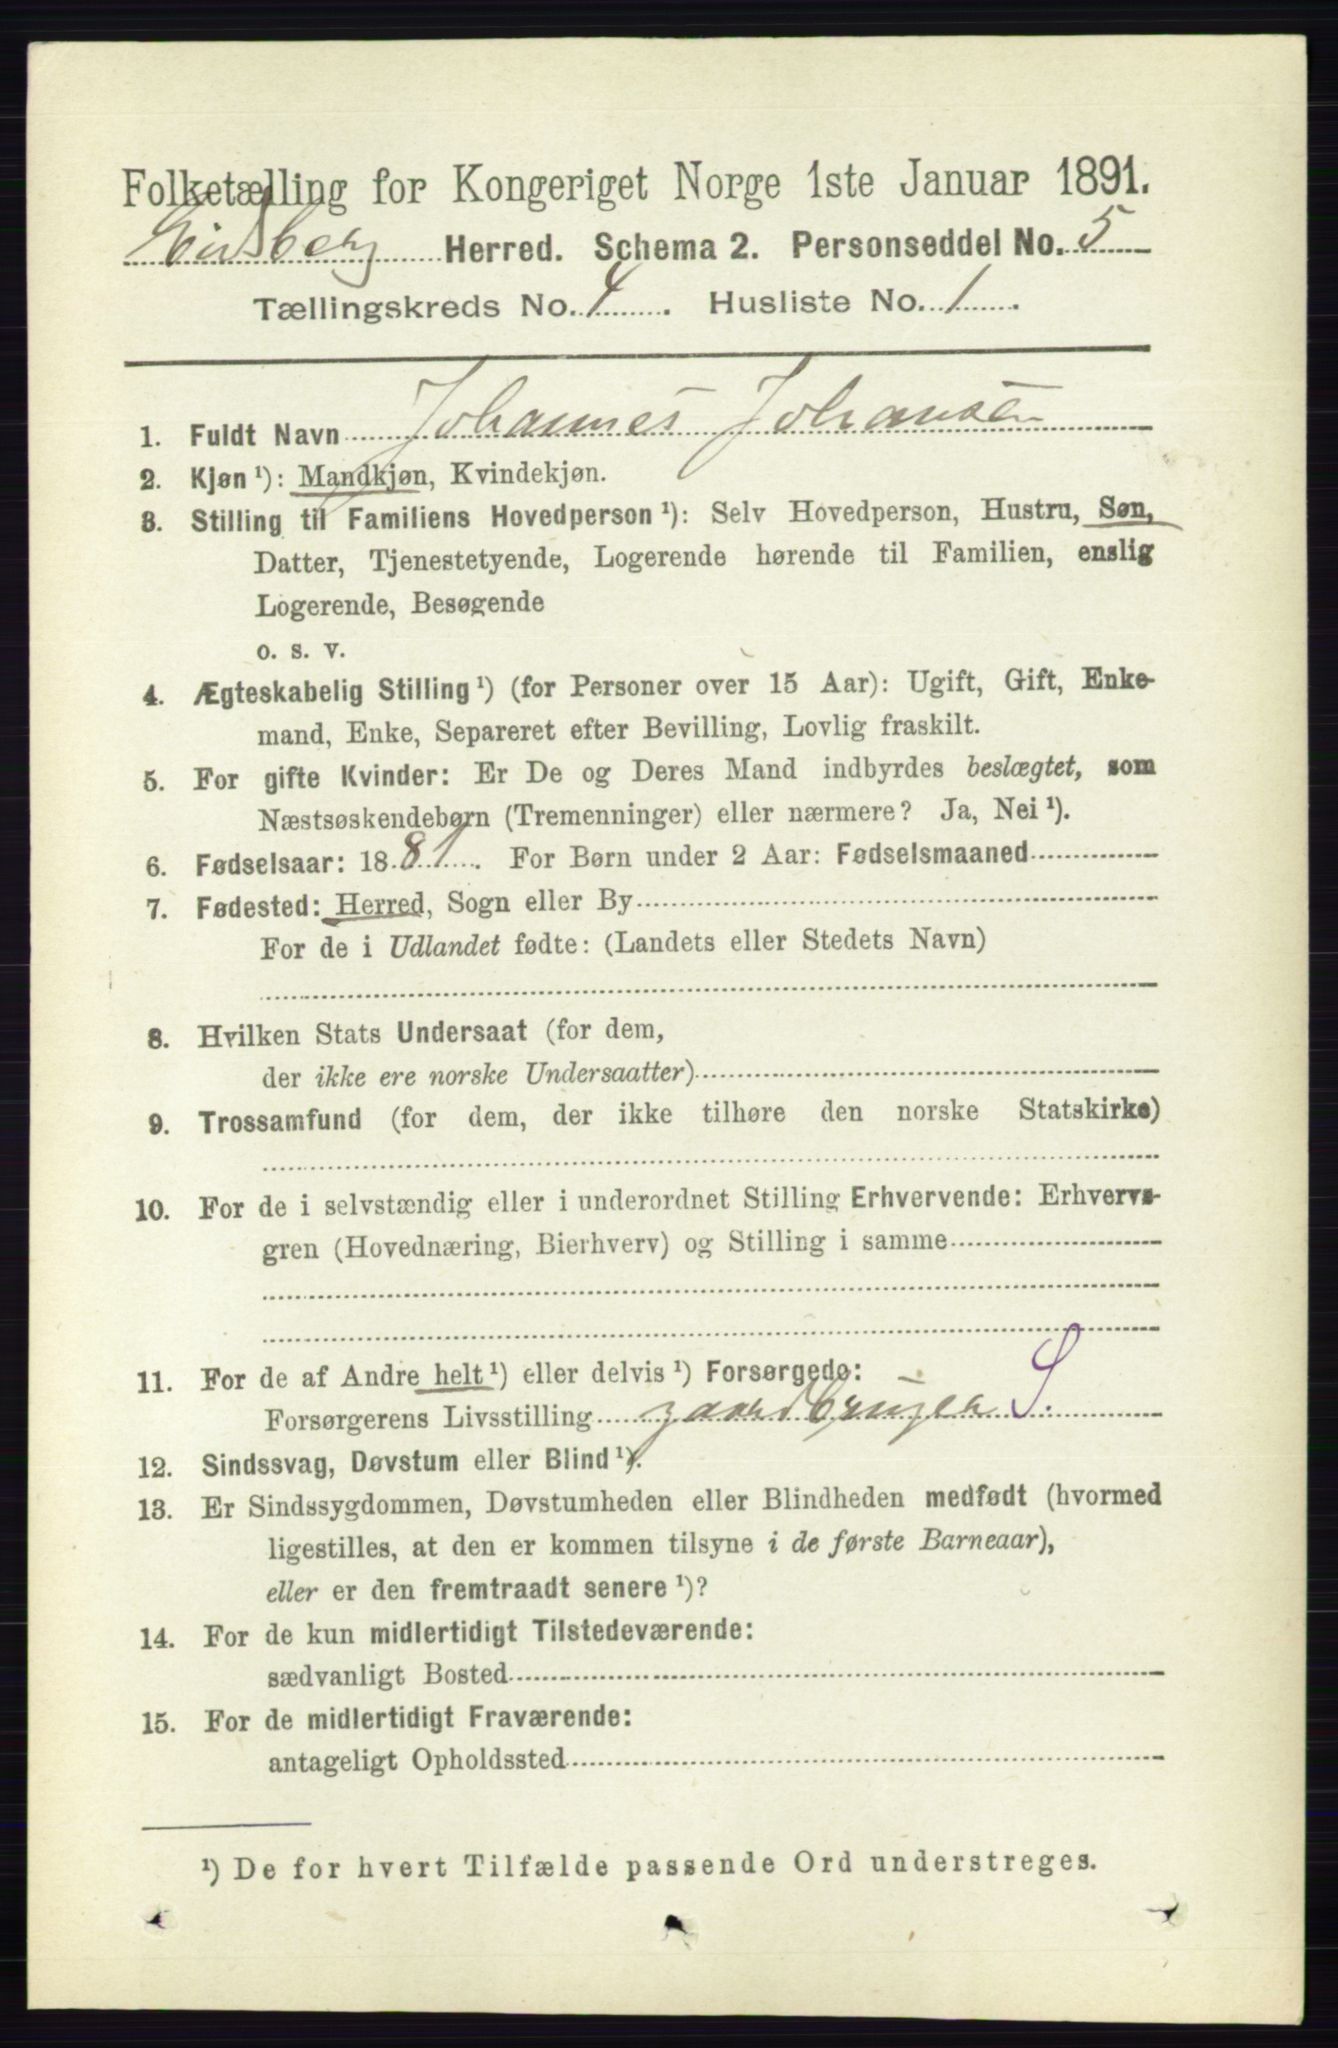 Folketælling for Kongeriget Norge 1ste Januar 1891.
Eidsberg Herred. Schema 2. Personseddel No. 5
Tællingskreds No. 4. Husliste No. 1.
1. Fuldt Navn Johannes Johansen
2. Kjøn ¹): Mandkjøn, Kvindekjøn.
3. Stilling til Familiens Hovedperson ¹): Selv Hovedperson, Hustru, Søn,
Datter, Tjenestetyende, Logerende hørende til Familien, enslig
Logerende, Besøgende
o. s. v.
4. Ægteskabelig Stilling ¹) (for Personer over 15 Aar): Ugift, Gift, Enke-
mand, Enke, Separeret efter Bevilling, Lovlig fraskilt.
5. For gifte Kvinder: Er De og Deres Mand indbyrdes beslægtet, som
Næstsøskendebørn (Tremenninger) eller nærmere? Ja, Nei ¹).
6. Fødselsaar: 1881. For Børn under 2 Aar: Fødselsmaaned
7. Fødested: Herred, Sogn eller By
For de i Udlandet fødte: (Landets eller Stedets Navn)
8. Hvilken Stats Undersaat (for dem,
der ikke ere norske Undersaatter)
9. Trossamfund (for dem, der ikke tilhøre den norske Statskirke)
10. For de i selvstændig eller i underordnet Stilling Erhvervende: Erhvervs-
gren (Hovednæring, Bierhverv) og Stilling i samme
11. For de af Andre helt ¹) eller delvis ¹) Forsørgede:
Forsørgerens Livsstilling gaardbruger S.
12. Sindssvag, Døvstum eller Blind ¹).
13. Er Sindssygdommen, Døvstumheden eller Blindheden medfødt (hvormed
ligestilles, at den er kommen tilsyne i de første Barneaar),
eller er den fremtraadt senere ¹)?
14. For de kun midlertidigt Tilstedeværende:
sædvanligt Bosted
15. For de midlertidigt Fraværende:
antageligt Opholdssted
¹) De for hvert Tilfælde passende Ord understreges.